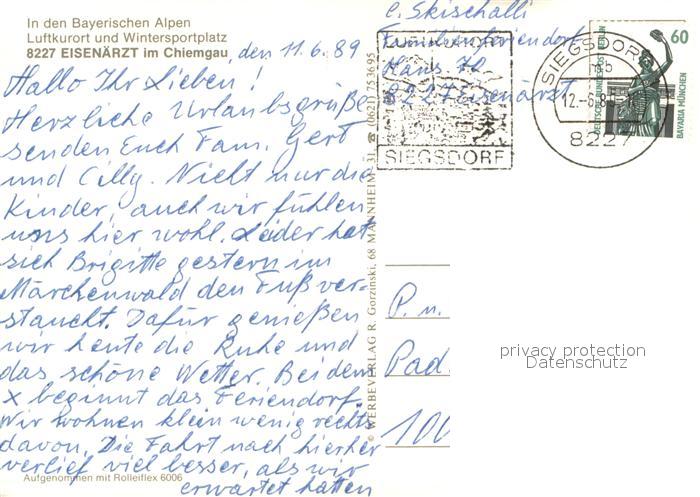 In den Bayerischen Alpen
Luftkurort und Wintersportplatz
8227 EISENÄRZT im Chiemgau, den 11.6.89
Hallo Ihr Lieben!
Herzliche Urlaubsgrüße
senden Euch Fam. Gert
und Cilly. Nicht nur die
Kinder, auch wir fühlen
uns hier wohl. Leider hat
sich Brigitte gestern im
Märchenwald den Fuß ver-
staucht. Dafür genießen
wir heute die Ruhe und
das schöne Wetter. Bei dem
x beginnt das Feriendorf.
Wir wohnen klein wenig rechts
davon. Die Fahrt nach hierher
verlief viel besser, als wir
erwartet hatten
Aufgenommen mit Rolleiflex 6006
© WERBEVERLAG R. Gorzinski, 68 MANNHEIM 31, ☎ (0621) 753695
c. Skischalli
Familienferiendorf
Haus 72
8227 Eisenärzt
LUFTKURORT
SIEGSDORF
SIEGSDORF
mb
12.-6.8
8227
60
DEUTSCHE BUNDESPOST BERLIN
BAVARIA MÜNCHEN
P. u.
Pad
100
privacy protection
Datenschutz